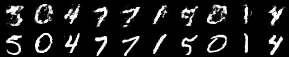 0 4 7 7 1 0 1 4
5 0 4 7 7 1 5 0 1 4